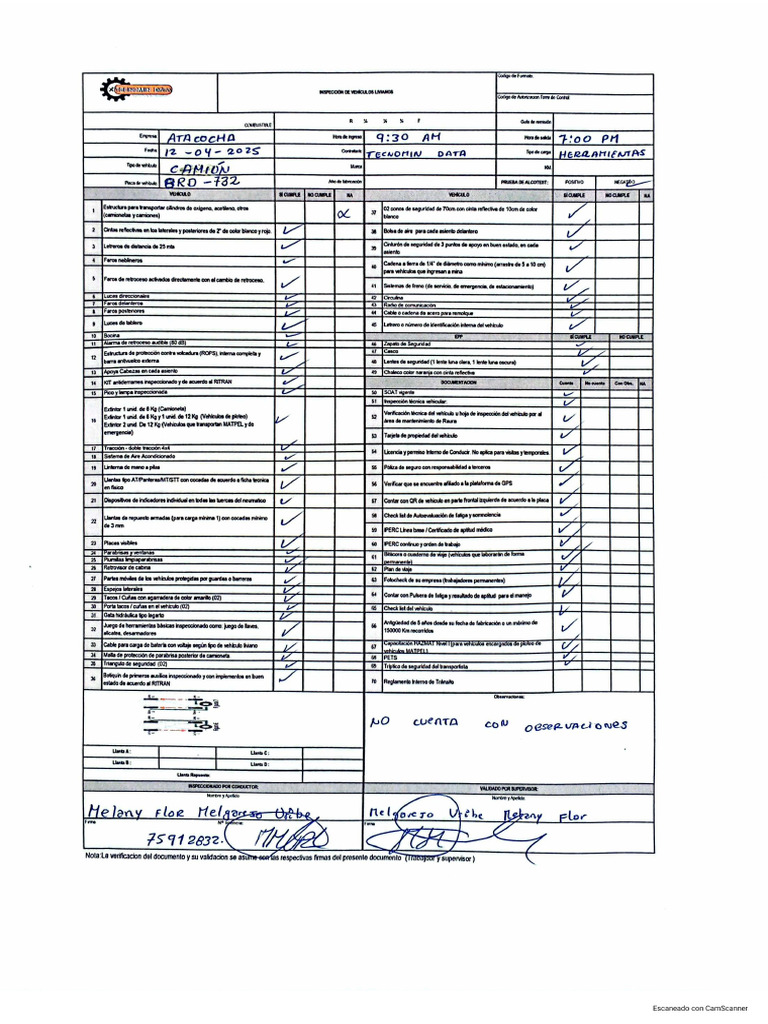 INSPECCIÓN DE VEHÍCULOS LIVIANOS
Código de Formato:
Código de Autorización Torre de Control:
COMBUSTIBLE R ¼ ½ ¾ F Guía de remisión
Empresa ATACOCHA Hora de ingreso 9:30 AM Hora de salida 7:00 PM
Fecha 12-04-2025 Contratista TECNOMIN DATA Tipo de carga HERRAMIENTAS
Tipo de vehículo CAMIÓN Marca KM
Placa de vehículo BRD-732 Año de fabricación PRUEBA DE ALCOTEST: POSITIVO NEGATIVO
VEHÍCULO SI CUMPLE NO CUMPLE NA
1 Estructura para transportar cilindros de oxigeno, acetileno, otros (camionetas y camiones)
2 Cintas reflectivas en los laterales y posteriores de 2" de color blanco y rojo.
3 Letreros de distancia de 25 mts
4 Faros neblineros
5 Faros de retroceso activados directamente con el cambio de retroceso.
6 Luces direccionales
7 Faros delanteros
8 Faros posteriores
9 Luces de tablero
10 Bocina
11 Alarma de retroceso audible (80 dB)
12 Estructura de protección contra volcadura (ROPS), interna completa y barra antivuelco externa
13 Apoya Cabezas en cada asiento
14 KIT antiderrames inspeccionado y de acuerdo al RITRAN
15 Pico y lampa inspeccionada
16 Extintor 1 unid. de 6 Kg (Camioneta)
Extintor 1 unid. de 6 Kg y 1 unid. de 12 Kg (Vehículos de ploteo)
Extintor 2 unid. De 12 Kg (Vehículos que transportan MATPEL y de emergencia)
17 Tracción - doble tracción 4x4
18 Sistema de Aire Acondicionado
19 Linterna de mano a pilas
20 Llantas tipo AT/Panteras/MT/STT con cocadas de acuerdo a ficha técnica en físico
21 Dispositivos de indicadores individual en todas las tuercas del neumatico
22 Llantas de repuesto armadas (para carga mínima 1) con cocadas mínimo de 3 mm
23 Placas visibles
24 Parabrisas y ventanas
25 Plumillas limpiaparabrisas
26 Retrovisor de cabina
27 Partes móviles de los vehículos protegidas por guardas o barreras
28 Espejos laterales
29 Tacos / Cuñas con agarradera de color amarillo (02)
30 Porta tacos / cuñas en el vehículo (02)
31 Gata hidráulica tipo lagarto
32 Juego de herramientas básicas inspeccionado como: juego de llaves, alicates, desarmadores
33 Cable para carga de batería con voltaje según tipo de vehículo liviano
34 Malla de protección de parabrisa posterior de camioneta
35 Triangulo de seguridad (02)
36 Botiquín de primeros auxilios inspeccionado y con implementos en buen estado de acuerdo al RITRAN
VEHÍCULO SI CUMPLE NO CUMPLE NA
37 02 conos de seguridad de 70cm con cinta reflectiva de 10cm de color blanco
38 Bolsa de aire para cada asiento delantero
39 Cinturón de seguridad de 3 puntos de apoyo en buen estado, en cada asiento
40 Cadena a tierra de 1/4" de diámetro como mínimo (arrastre de 5 a 10 cm) para vehículos que ingresan a mina
41 Sistemas de freno (de servicio, de emergencia, de estacionamiento)
42 Circulina
43 Radio de comunicación
44 Cable o cadena de acero para remolque
45 Letrero o número de identificación interna del vehículo
EPP SI CUMPLE NO CUMPLE
46 Zapato de Seguridad
47 Casco
48 Lentes de seguridad (1 lente luna clara, 1 lente luna oscura)
49 Chaleco color naranja con cinta reflectiva
DOCUMENTACION Cuenta No cuenta Con Obs. NA
50 SOAT vigente
51 Inspección técnica vehicular:
52 Verificación técnica del vehículo u hoja de inspección del vehículo por el área de mantenimiento de Raura
53 Tarjeta de propiedad del vehículo
54 Licencia y permiso Interno de Conducir. No aplica para visitas y temporales.
55 Póliza de seguro con responsabilidad a terceros
56 Verificar que se encuentre afiliado a la plataforma de GPS
57 Contar con QR de vehículo en parte frontal izquierda de acuerdo a la placa
58 Check list de Autoevaluación de fatiga y somnolencia
59 IPERC Línea base / Certificado de aptitud médico
60 IPERC continuo y orden de trabajo
61 Bitácora o cuaderno de viaje (vehículos que laborarán de forma permanente)
62 Plan de viaje
63 Fotocheck de su empresa (trabajadores permanentes)
64 Contar con Pulsera de fatiga y resultado de aptitud para el manejo
65 Check list del vehículo
66 Antigüedad de 5 años desde su fecha de fabricación o un máximo de 150000 Km recorridos
67 Capacitación HAZMAT Nivel I (para vehículos encargados de ploteo de vehículos MATPEL)
68 PETS
69 Tríptico de seguridad del transportista
70 Reglamento Interno de Tránsito
Observaciones:
NO CUENTA CON OBSERVACIONES
Llanta A : Llanta C :
Llanta B : Llanta D :
Llanta Repuesto:
INSPECCIONADO POR CONDUCTOR: VALIDADO POR SUPERVISOR:
Nombre y Apellido Nombre y Apellido
Melany Flor Melgarejo Uribe Melgarejo Uribe Melany Flor
Firma Firma
75912832.
Nota:La verificacion del documento y su validacion se asume con las respectivas firmas del presente documento (Trabajador y supervisor )
Escaneado con CamScanner